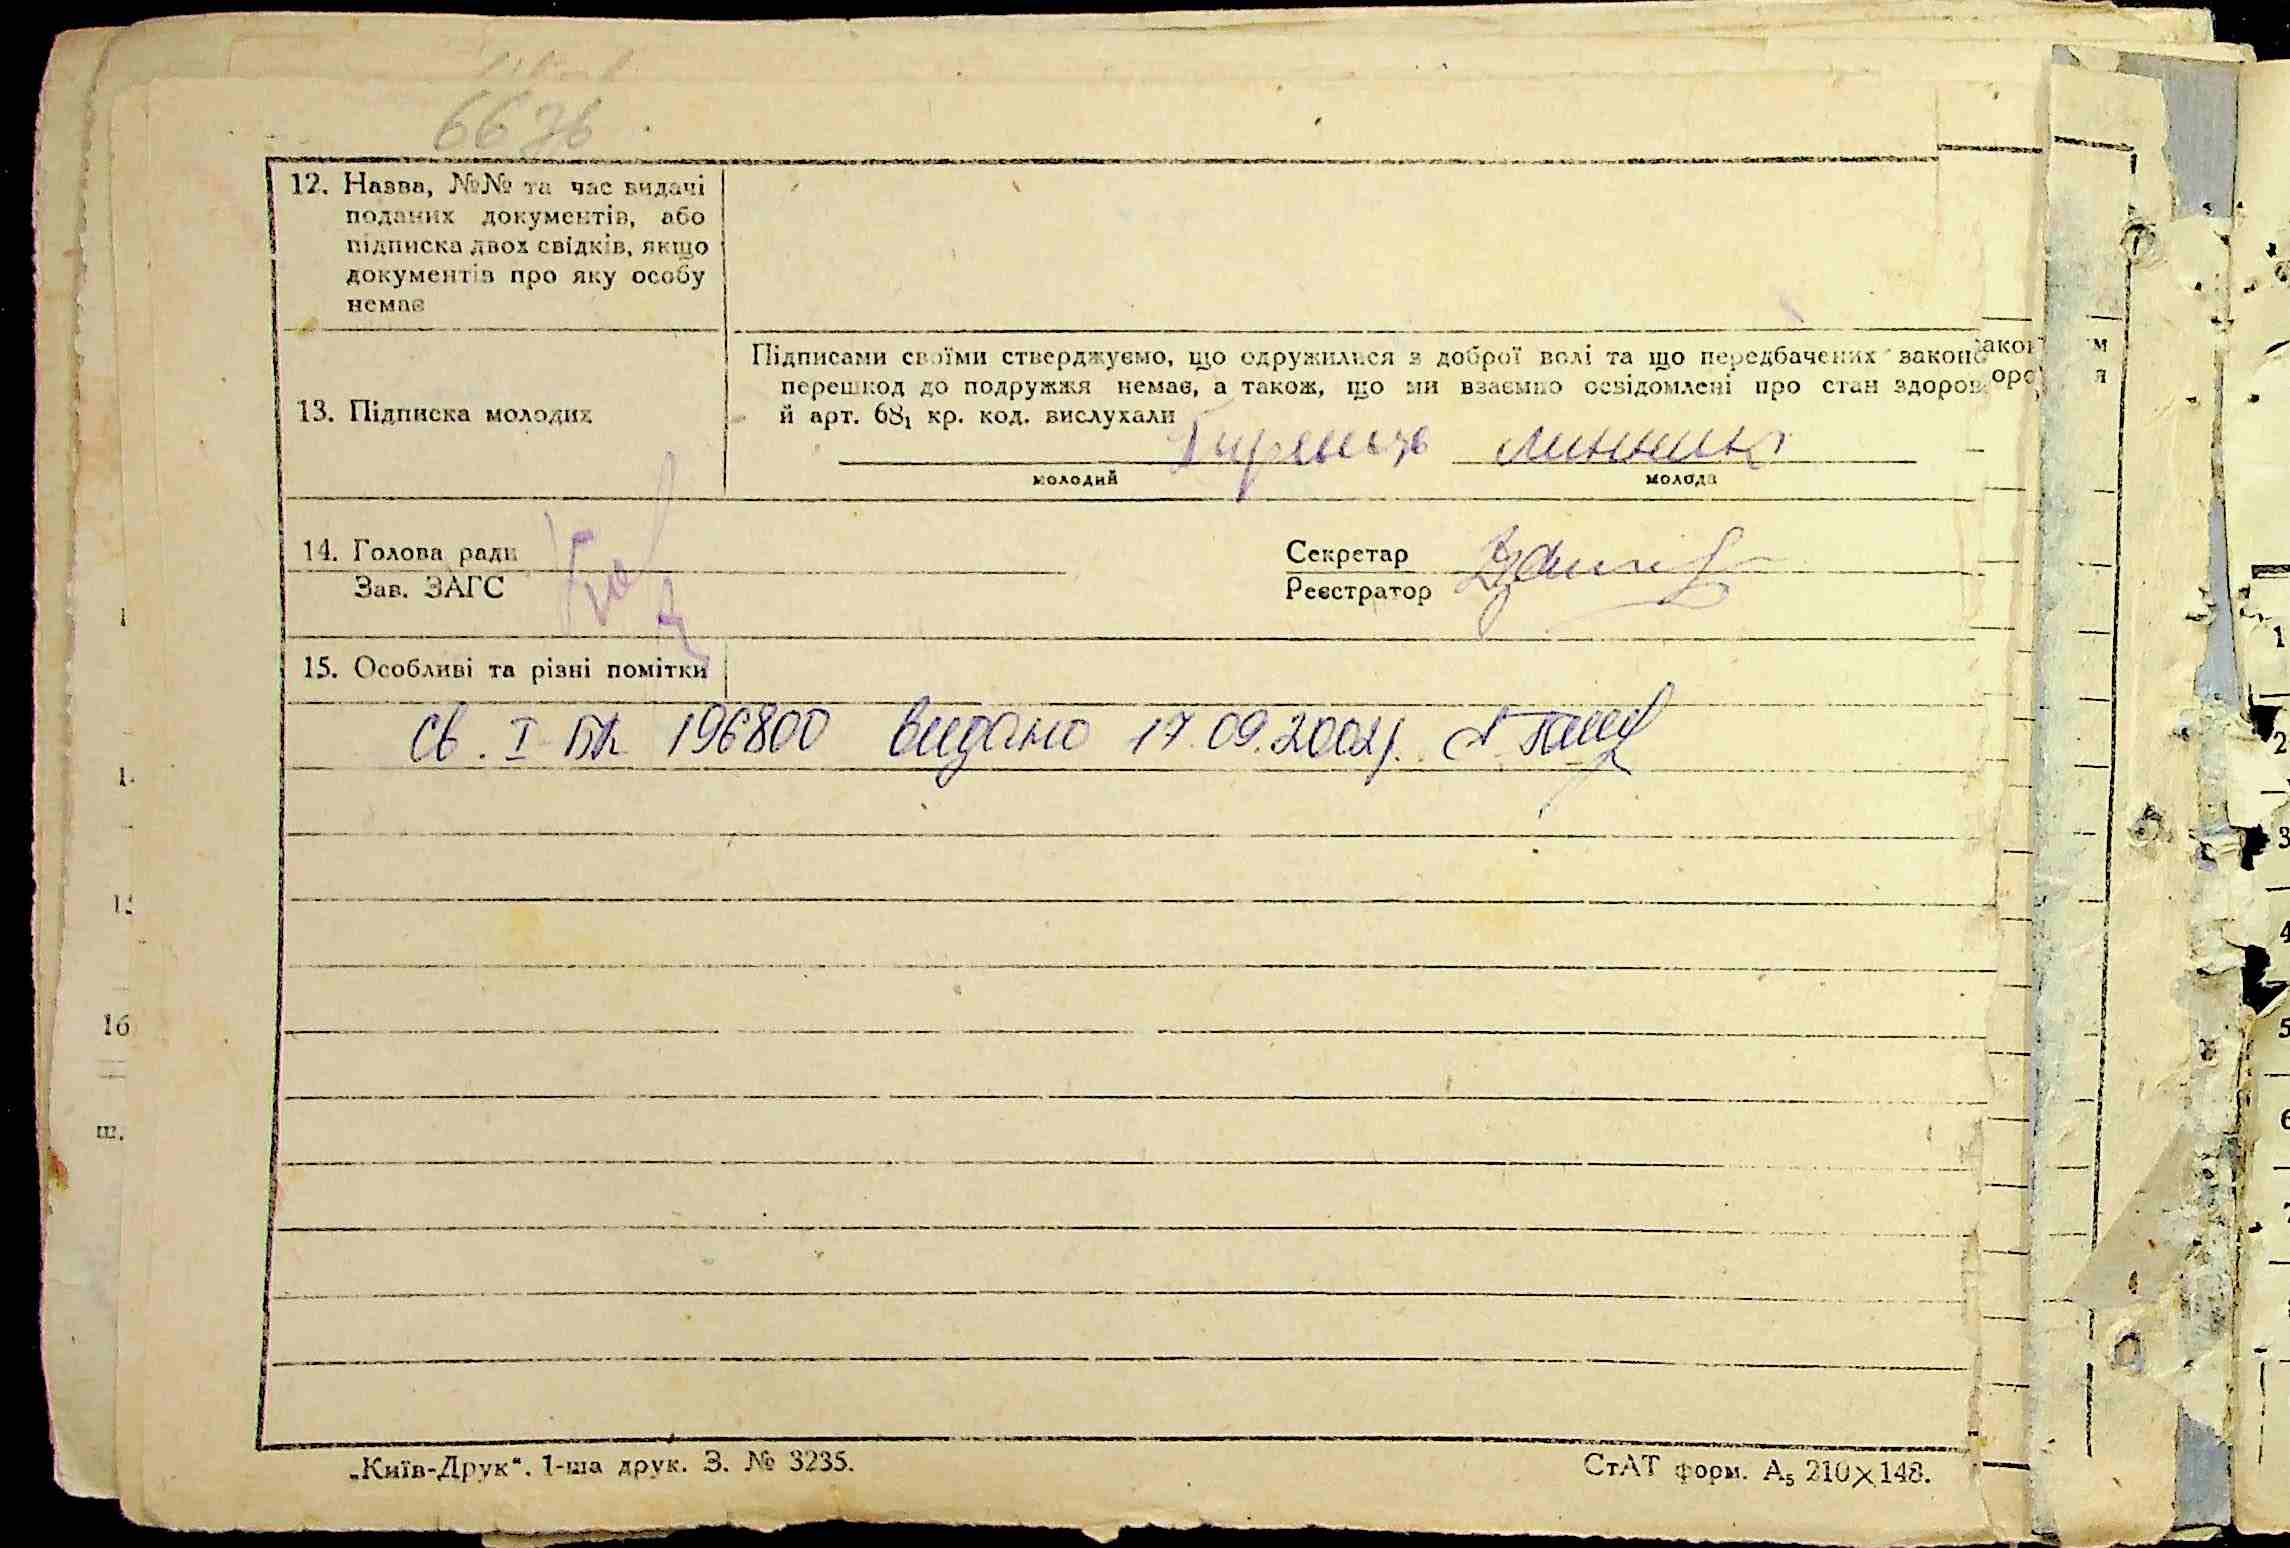 66 зв
12. Назва, №№ та час видачі
поданих документів, або
підписка двох свідків, якщо
документів про яку особу
немає
Підписами своїми стверджуємо, що одружилися з доброї волі та що передбачених законо
перешкод до подружжя немає, а також, що ми взаємно освідомлені про стан здоров
13. Підписка молодих
й арт. 68₁ кр. код. вислухали
молодий
молода
14. Голова ради
Секретар
Зав. ЗАГС
Реєстратор
15. Особливі та різні помітки
Св. І-БК 196800 видано 17.09.2002р.
„Київ-Друк“. 1-ша друк. З. № 3235.
СтАТ форм. А₅ 210×148.